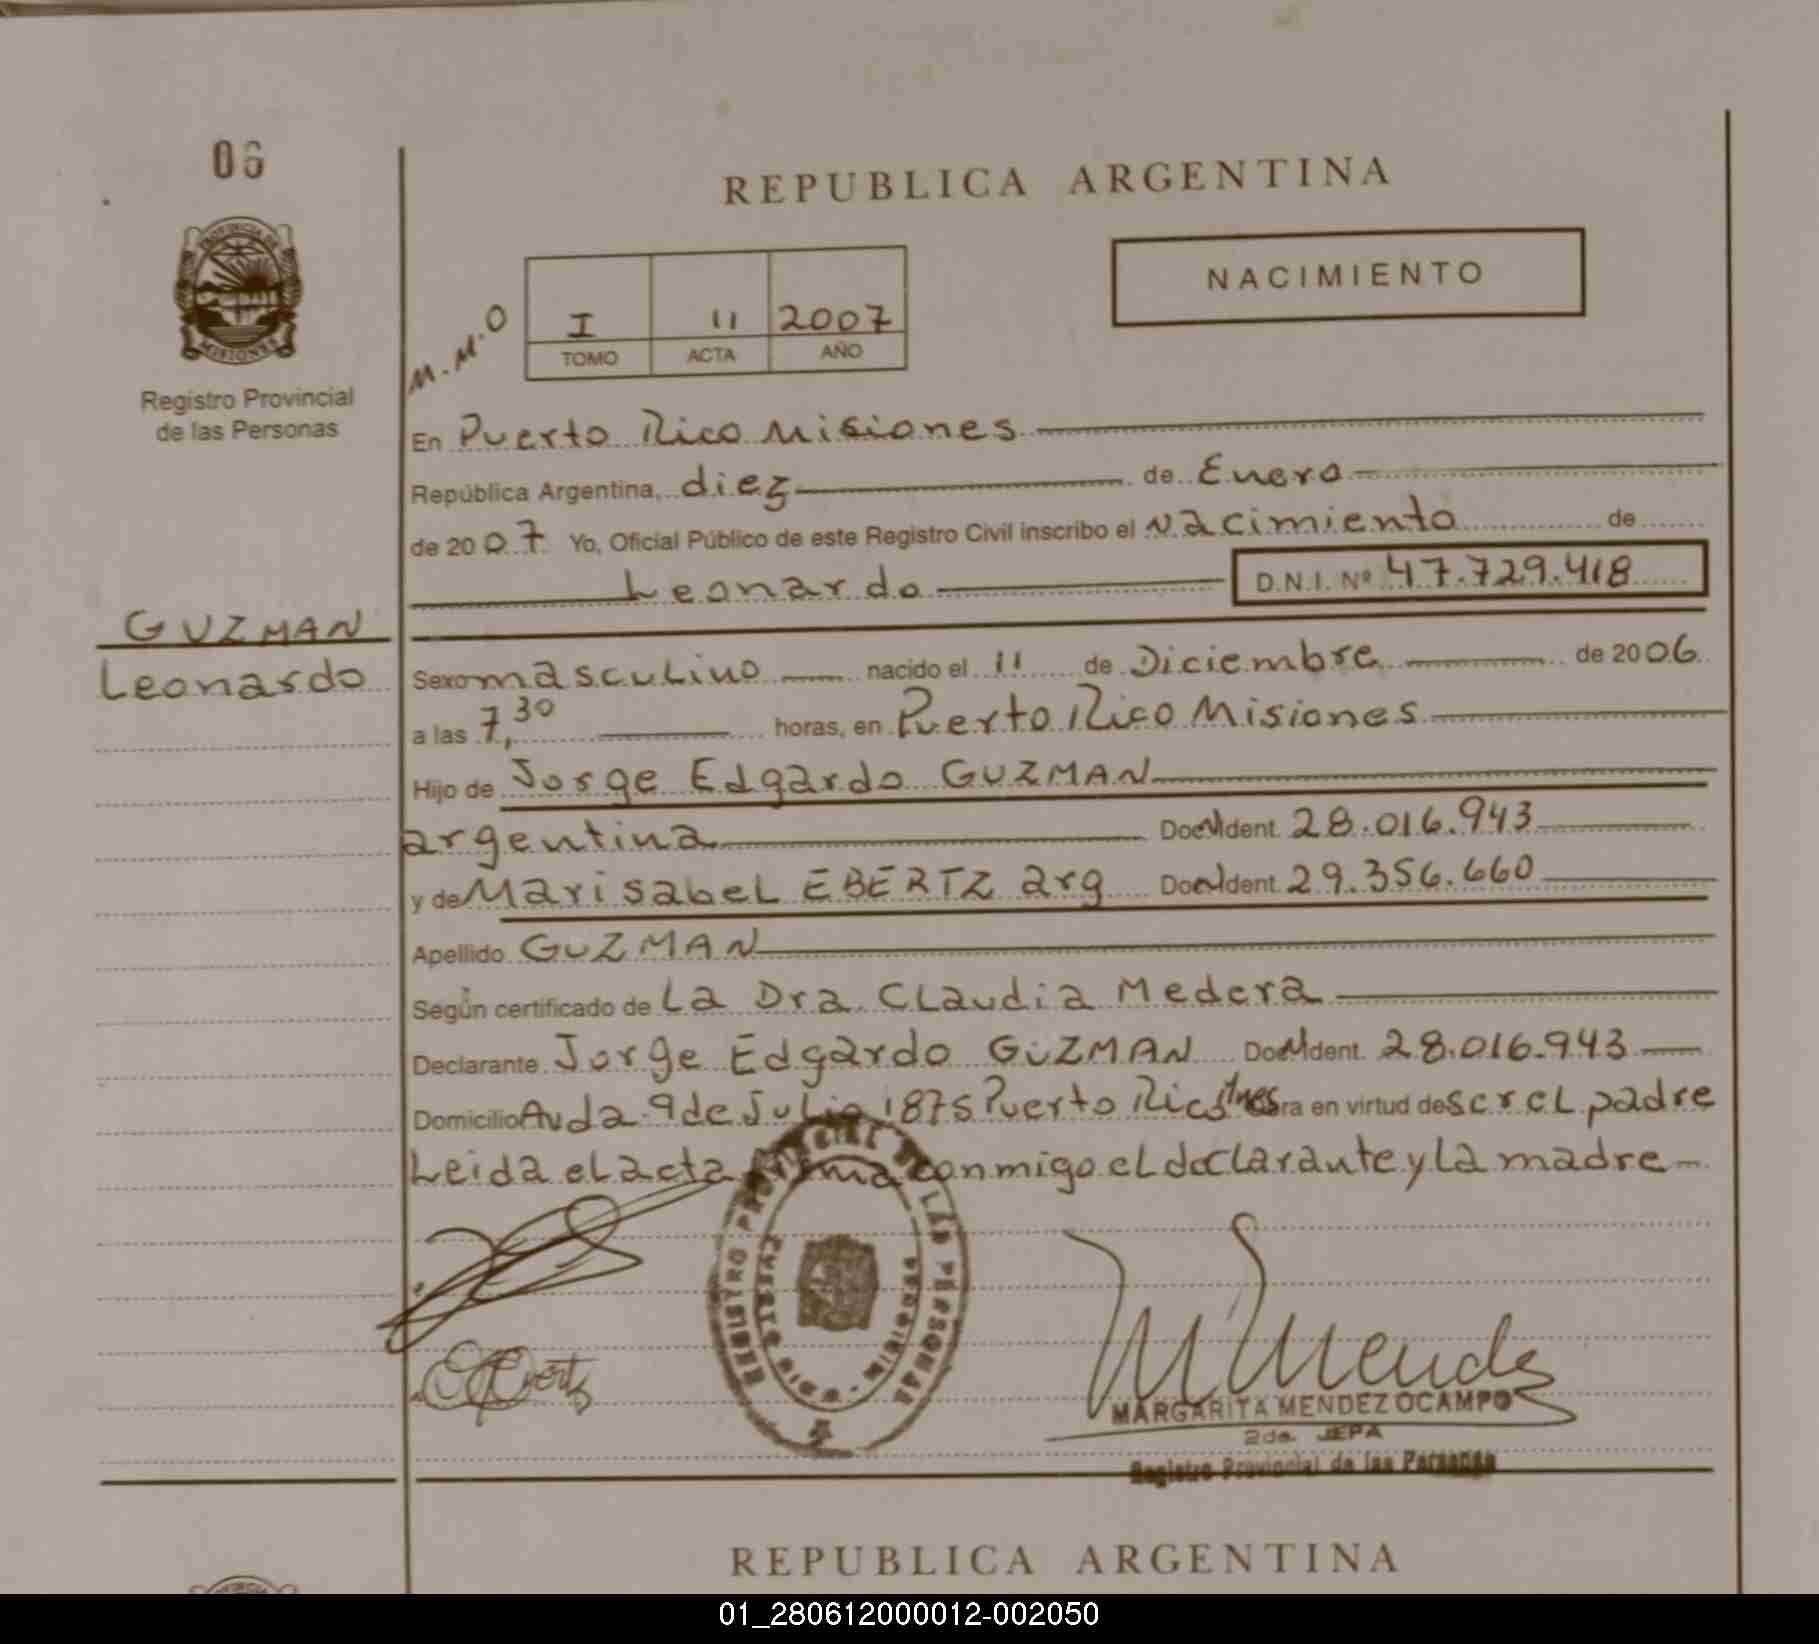 06
REPUBLICA ARGENTINA
PROVINCIA DE MISIONES
Registro Provincial
de las Personas
M.M.O
I 11 2007
TOMO ACTA AÑO
NACIMIENTO
En Puerto Rico Misiones
República Argentina, diez de Enero
de 2007 Yo, Oficial Público de este Registro Civil inscribo el nacimiento de
Leonardo D.N.I. Nº 47.729.418
GUZMAN
Leonardo
Sexo masculino nacido el 11 de Diciembre de 2006
a las 7,30 horas, en Puerto Rico Misiones
Hijo de Jorge Edgardo GUZMAN
argentina Doc. Ident. 28.016.943
y de Marisabel EBERTZ arg Doc. Ident. 29.356.660
Apellido GUZMAN
Según certificado de La Dra. Claudia Medera
Declarante Jorge Edgardo GUZMAN Doc. Ident. 28.016.943
Domicilio Avda. 9 de Julio 1875 Puerto Rico Mnes ra en virtud de ser el padre
Leida el acta firma conmigo el declarante y la madre
REGISTRO PROVINCIAL DE LAS PERSONAS
M Mendez
MARGARITA MENDEZ OCAMPO
2da. JEFA
Registro Provincial de las Personas
REPUBLICA ARGENTINA
01_280612000012-002050